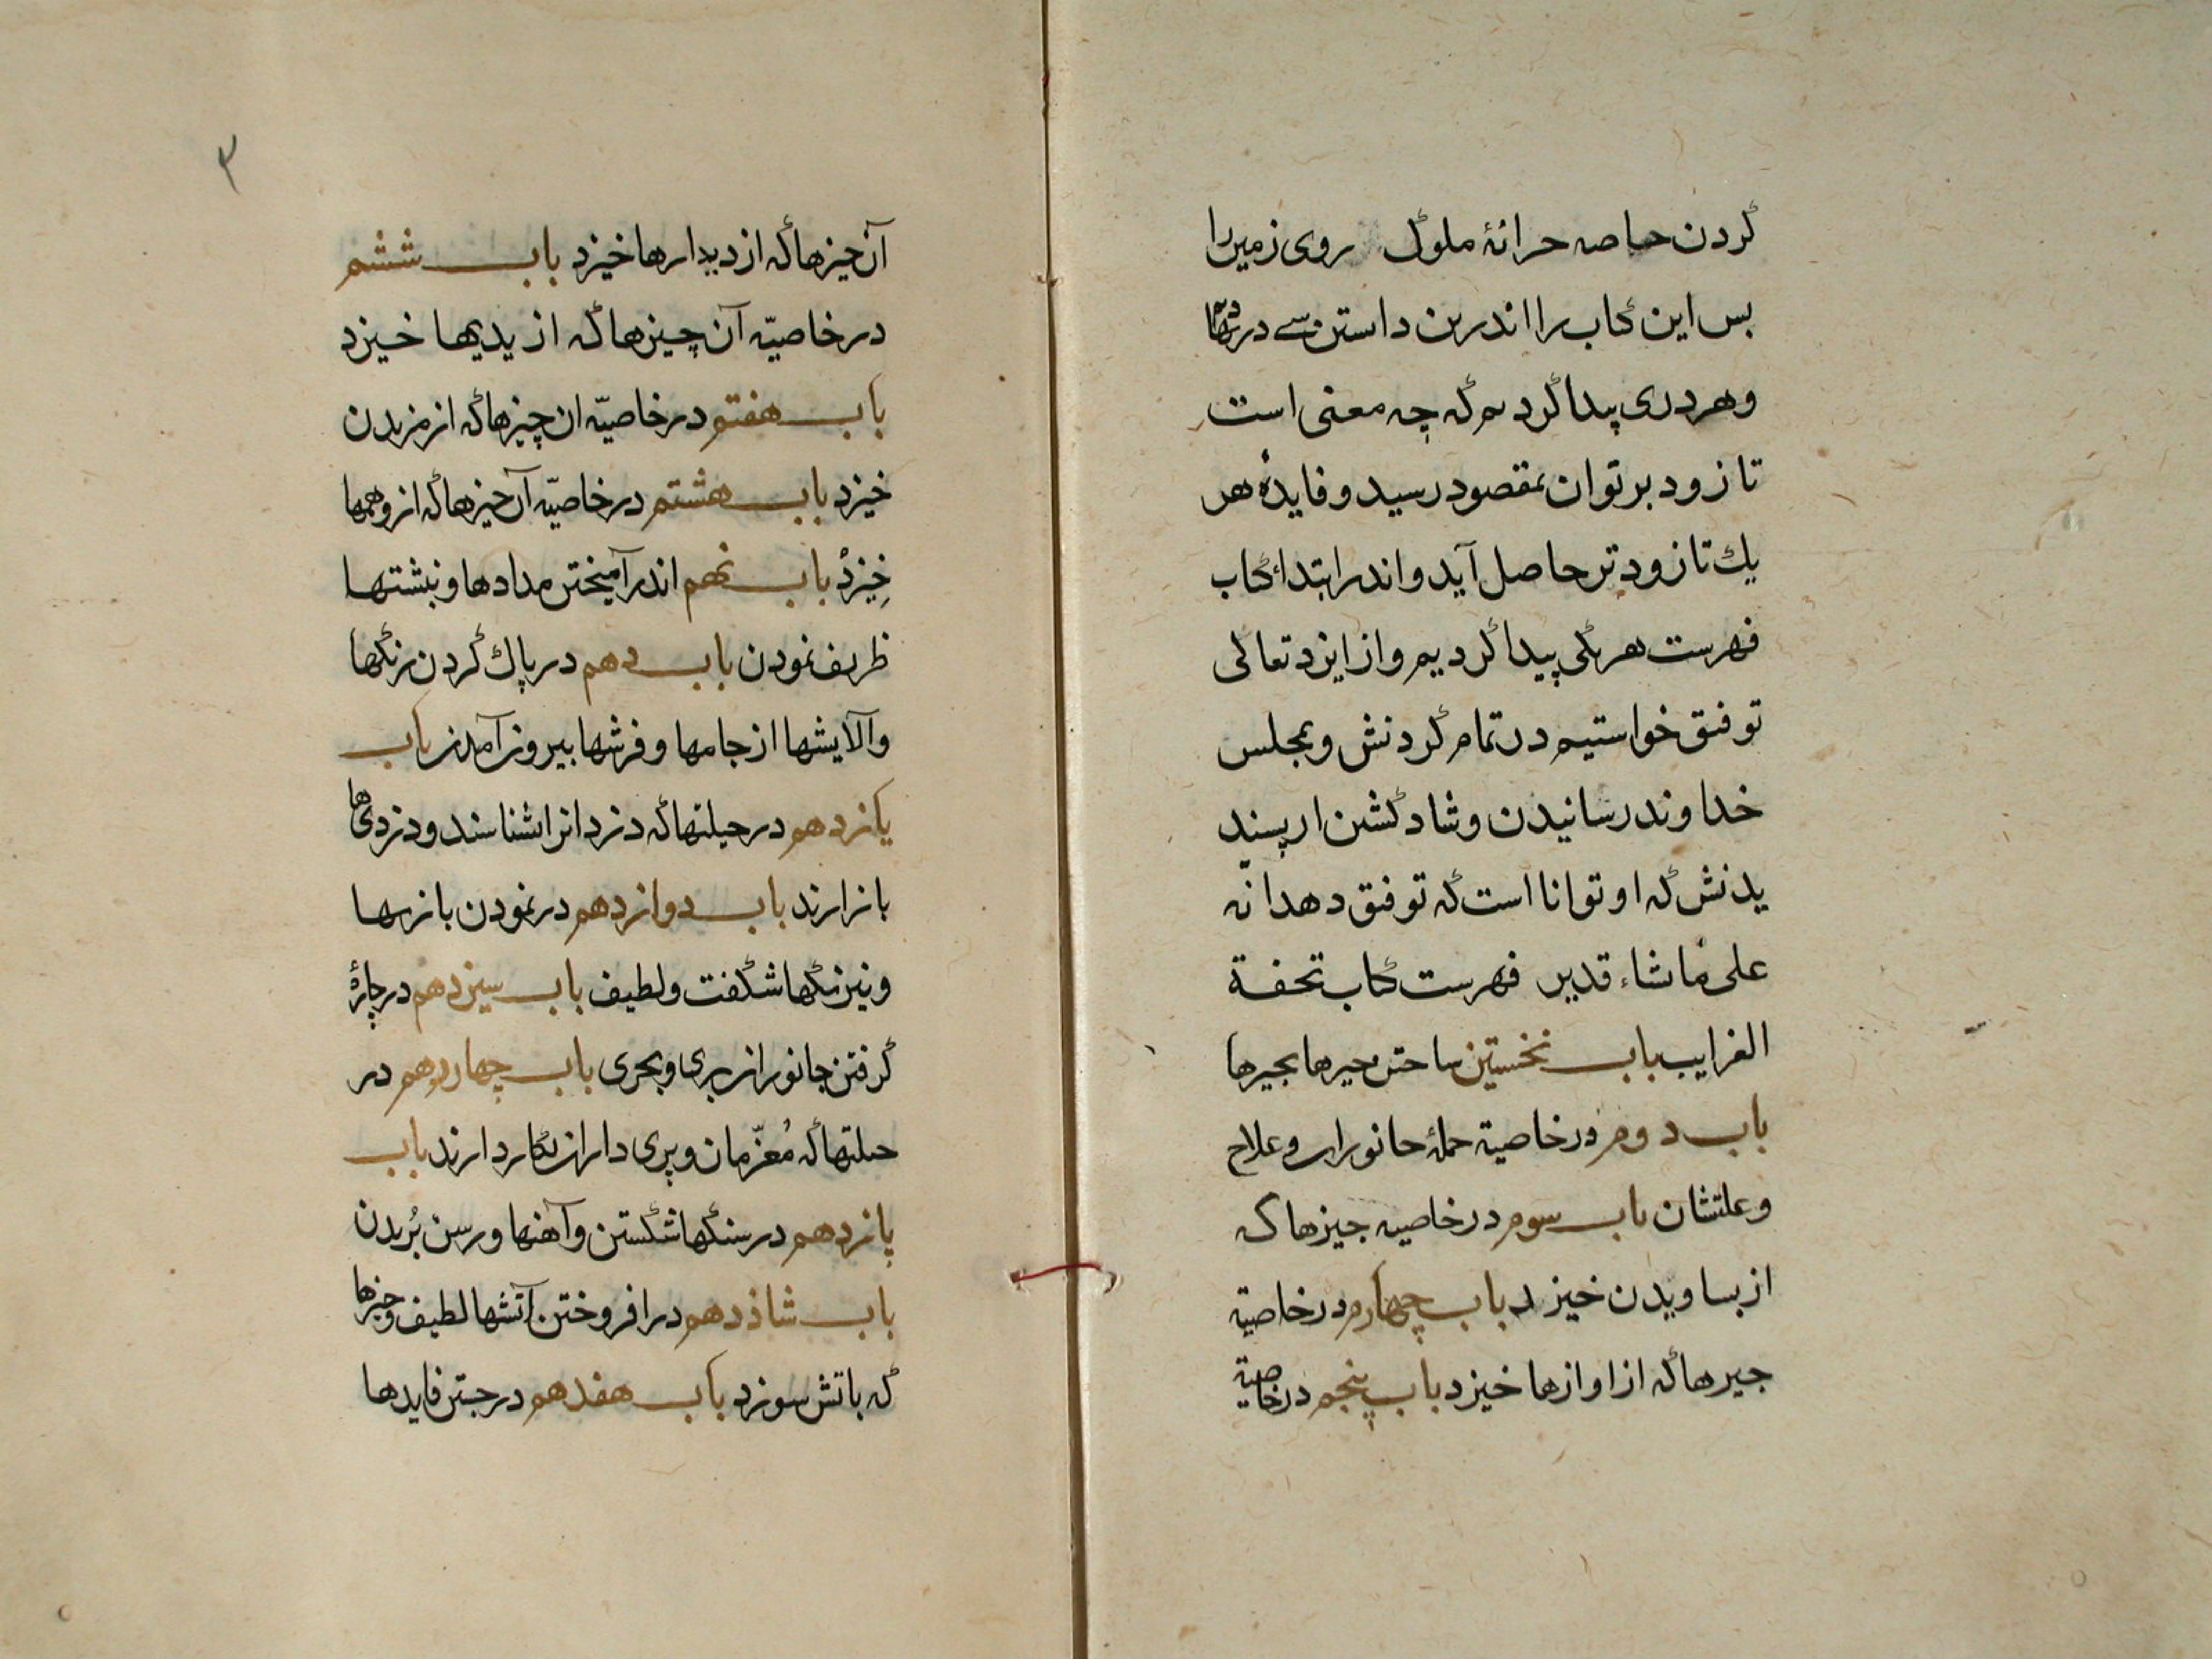 كردن خاصه خزانهٔ ملوك روى زمين را
بس اين كتاب را اندرين داستن سى در نهاديم
وهر درى پيدا كرديم كه چه معنى است
تا زود بر توان بمقصود رسيد و فايدهٔ هر
يك تا زودتر حاصل آيد و اندر ابتداء كتاب
فهرست هر يكى پيدا كرديم و از ايزد تعالى
توفيق خواستيم در تمام كردنش و بمجلس
خداوند رسانيدن و شاد كشتن از پسند
يدنش كه او تواناا است كه توفيق دهد انّه
على ما شاء قدير فهرست كتاب تحفة
الغرايب باب نخستين ساختن چيرها بچيرها
باب دوم در خاصية جملهٔ جانوران و علاج
وعلتشان باب سوم در خاصيه جيزها كه
از بساويدن خيزد باب چهارم در خاصية
جيرها كه از اوازها خيزد باب پنجم در خاصية
٣
آن چيزها كه از ديدارها خيزد باب ششم
در خاصيّه آن چيزها كه از يديها خيزد
باب هفتم در خاصيّه ان چيزها كه از مزيدن
خيزد باب هشتم در خاصيّه آن چيزها كه از وهمها
خيزد باب نهم اندر آميختن مدادها و نبشتها
ظريف نمودن باب دهم در پاك كردن رنگها
والآيشها از جامها و فرشها بيرون آمدن باب
يازدهم در حيلتها كه دزدانرا بشناسند و دزدى ها
باز ارند باب دوازدهم در نمودن بازيها
ونيرنگها شگفت ولطيف باب سيزدهم در چارهٔ
گرفتن جانوران برى و بحرى باب چهاردهم در
حيلتها كه مُعزّمان و پرى داران بكار دارند باب
پانزدهم در سنگها شكستن و آهنها و رسن بُريدن
باب شاذدهم در افروختن آتشها لطيف و چيزها
كه باتش سوزد باب هفدهم در جستن فايدها